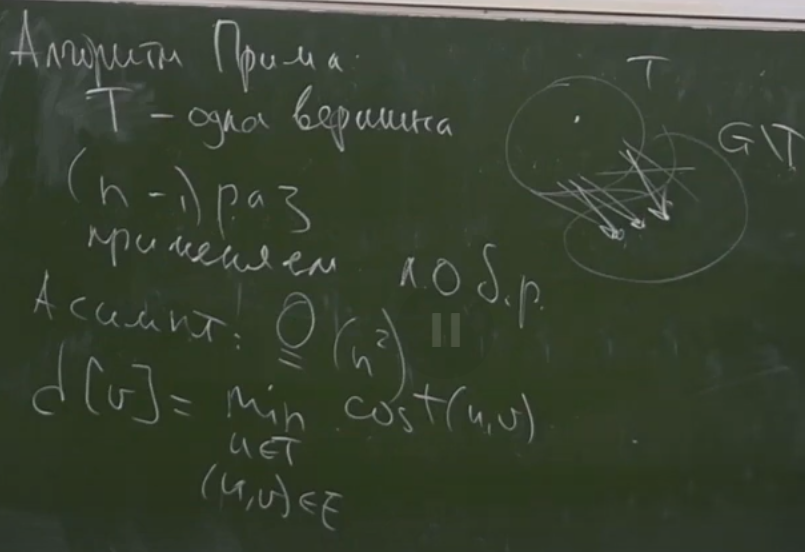 Алгоритм Прима:
T - одна вершина
(n-1) раз
применяем л. о б. р.
Асимпт: O(n²)
d[v] = min cost(u,v)
u∈T
(u,v)∈E
T
G\T